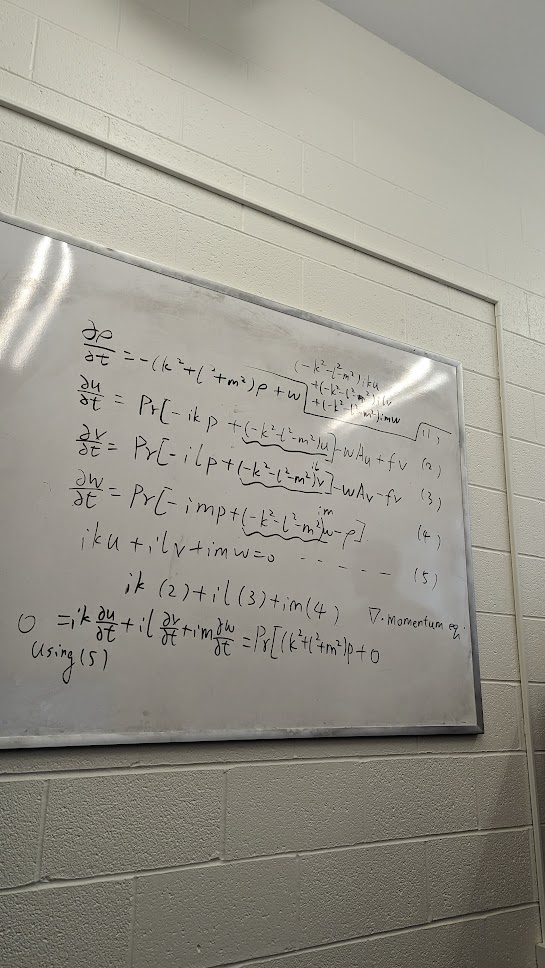 ∂ρ/∂t = -(k²+l²+m²)ρ + w (1)
(-k²-l²-m²)iku
+(-k²-l²-m²)ilv
+(-k²-l²-m²)imw
∂u/∂t = Pr[-ikp + (-k²-l²-m²)u] - wAu + fv (2)
∂v/∂t = Pr[-ilp + (-k²-l²-m²)v] - wAv - fv (3)
il
∂w/∂t = Pr[-imp + (-k²-l²-m²)w - ρ] (4)
im
iku + ilv + imw = 0 - - - - - - (5)
ik (2) + il (3) + im (4) ∇·momentum eq.
0 = ik ∂u/∂t + il ∂v/∂t + im ∂w/∂t = Pr[(k²+l²+m²)p + 0
Using (5)